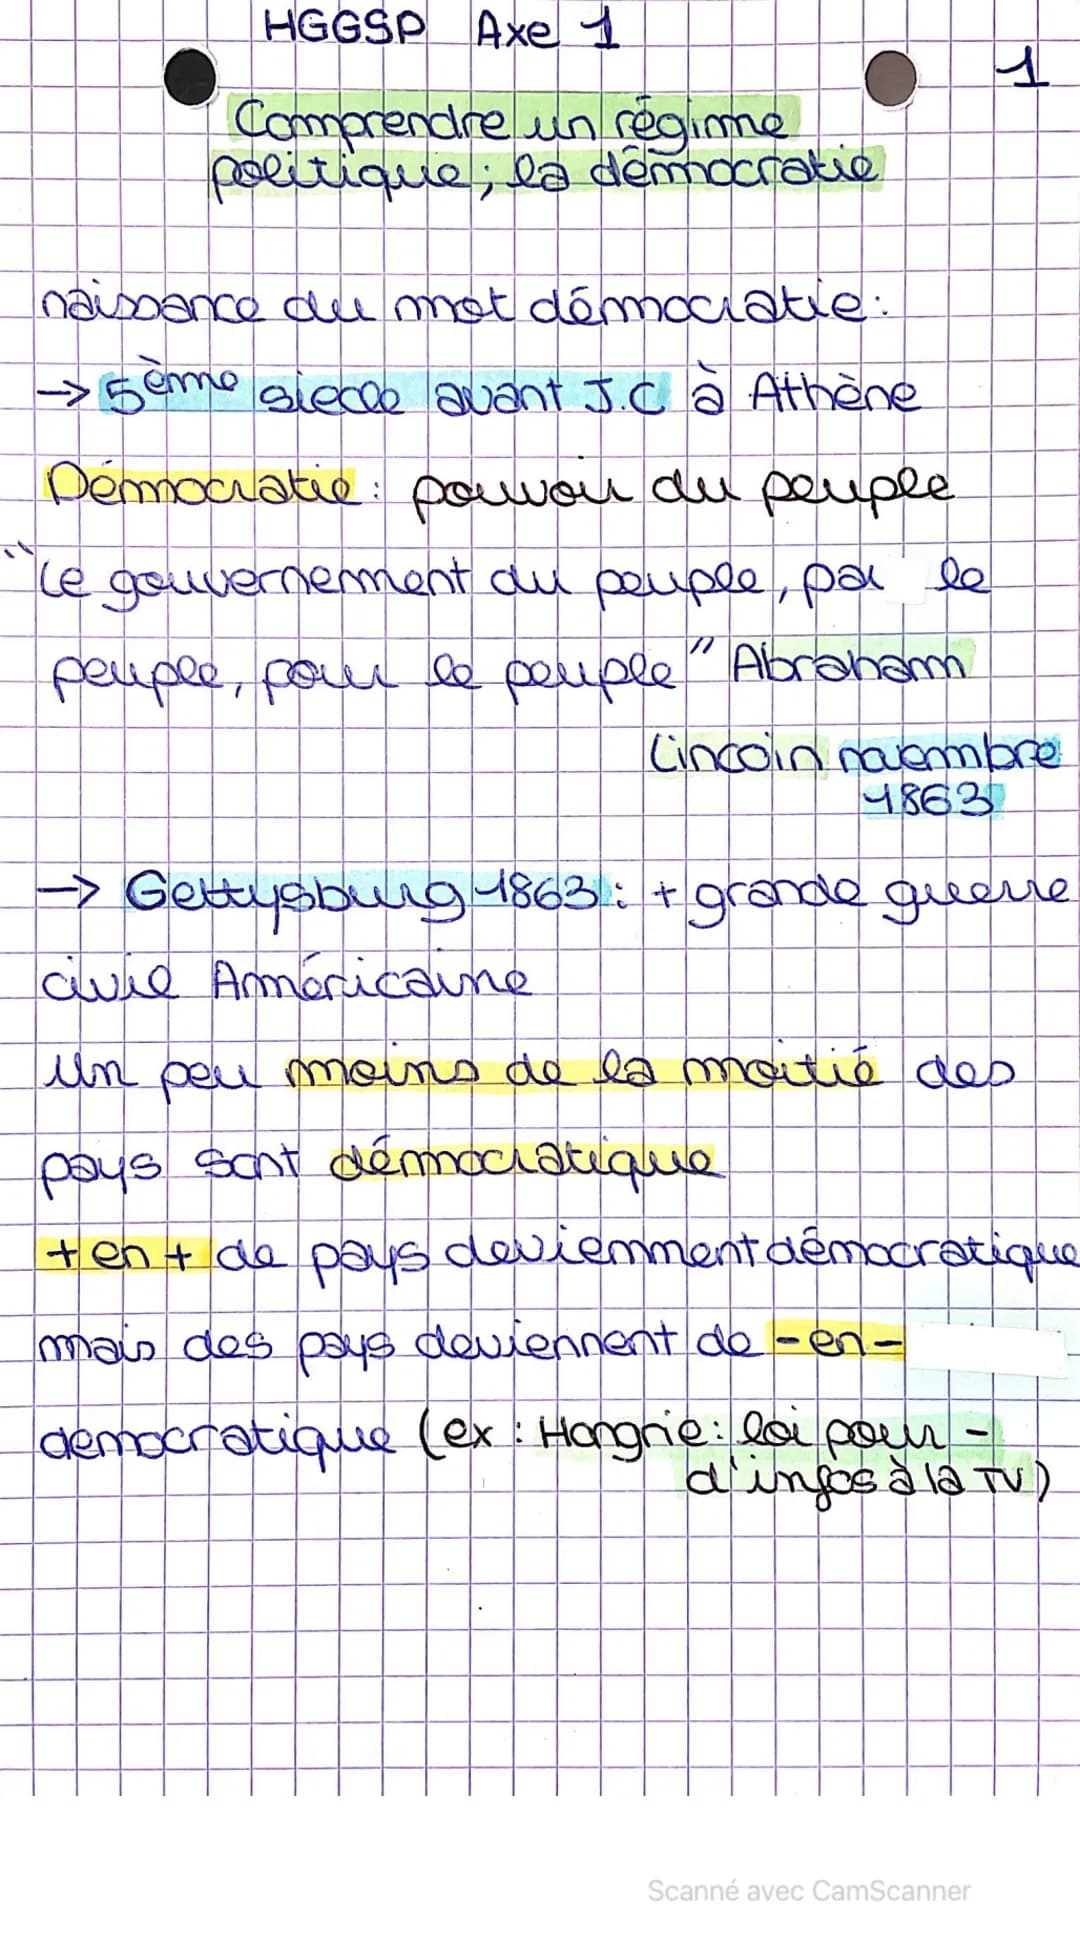 HGGSP Axe 1
1
Comprendre un régime
politique ; la démocratie
naissance du mot démocratie :
→ 5ème siecle avant J.C à Athène
Démocratie : pouvoir du peuple
"Le gouvernement du peuple, par le
peuple, pour le peuple" Abraham
Lincoln novembre
1863
→ Gettysburg 1863 : + grande guerre
civil Américaine
Un peu moins de la moitié des
pays sont démocratique
+ en + de pays deviennent démocratique
mais des pays deviennent de - en -
democratique (ex : Hongrie : loi pour -
d'infos à la TV)
Scanné avec CamScanner